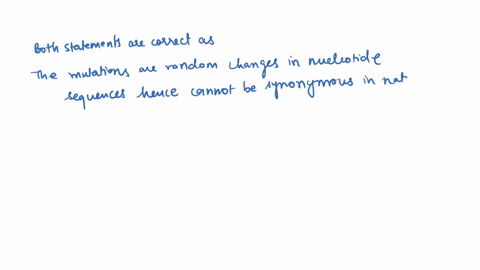 Both statements are correct as
The mutations are random changes in nucleotide
sequences hence cannot be synonymous in nat